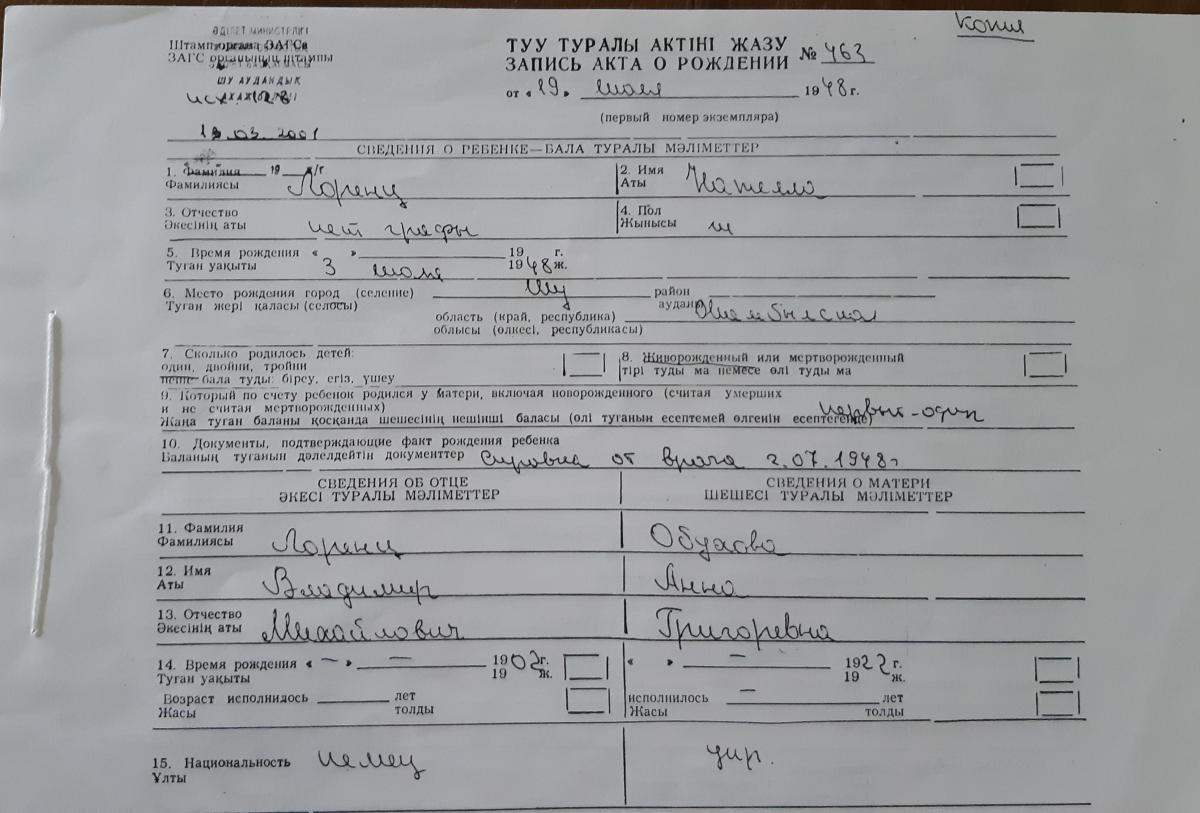 Копия
ӘДІЛЕТ МИНИСТРЛІГІ
Штамп органа ЗАГСа
ЗАГС органының штампы
ШУ АУДАНДЫҚ
исх. 128
19.03.2001
ТУУ ТУРАЛЫ АКТІНІ ЖАЗУ
ЗАПИСЬ АКТА О РОЖДЕНИИ № 463
от «19» июля 1948 г.
(первый номер экземпляра)
СВЕДЕНИЯ О РЕБЕНКЕ—БАЛА ТУРАЛЫ МӘЛІМЕТТЕР
1. Фамилия 19 г
Фамилиясы Лоренц
2. Имя
Аты Нателла
3. Отчество
Әкесінің аты нет графы
4. Пол
Жынысы ж
5. Время рождения « » 19 г.
Туған уақыты 3 июля 1948 ж.
6. Место рождения город (селение) Шу район
Туған жері қаласы (селосы) аудан
область (край, республика) Жамбылская
облысы (өлкесі, республикасы)
7. Сколько родилось детей:
один, двойни, тройни
неше бала туды: біреу, егіз, үшеу
8. Живорожденный или мертворожденный
тірі туды ма немесе өлі туды ма
9. Который по счету ребенок родился у матери, включая новорожденного (считая умерших
и не считая мертворожденных)
Жаңа туған баланы қосқанда шешесінің нешінші баласы (өлі туғанын есептемей өлгенін есептегенде) первый-один
10. Документы, подтверждающие факт рождения ребенка
Баланың туғанын дәлелдейтін документтер Справка от врача 2.07.1948г
СВЕДЕНИЯ ОБ ОТЦЕ
ӘКЕСІ ТУРАЛЫ МӘЛІМЕТТЕР
СВЕДЕНИЯ О МАТЕРИ
ШЕШЕСІ ТУРАЛЫ МӘЛІМЕТТЕР
11. Фамилия
Фамилиясы Лоренц Обухова
12. Имя
Аты Владимир Анна
13. Отчество
Әкесінің аты Михайлович Григоревна
14. Время рождения « — » — 1902 г. « » — 1922 г.
Туған уақыты 19 ж. 19 ж.
Возраст исполнилось лет исполнилось — лет
Жасы толды Жасы толды
15. Национальность немец укр.
Ұлты